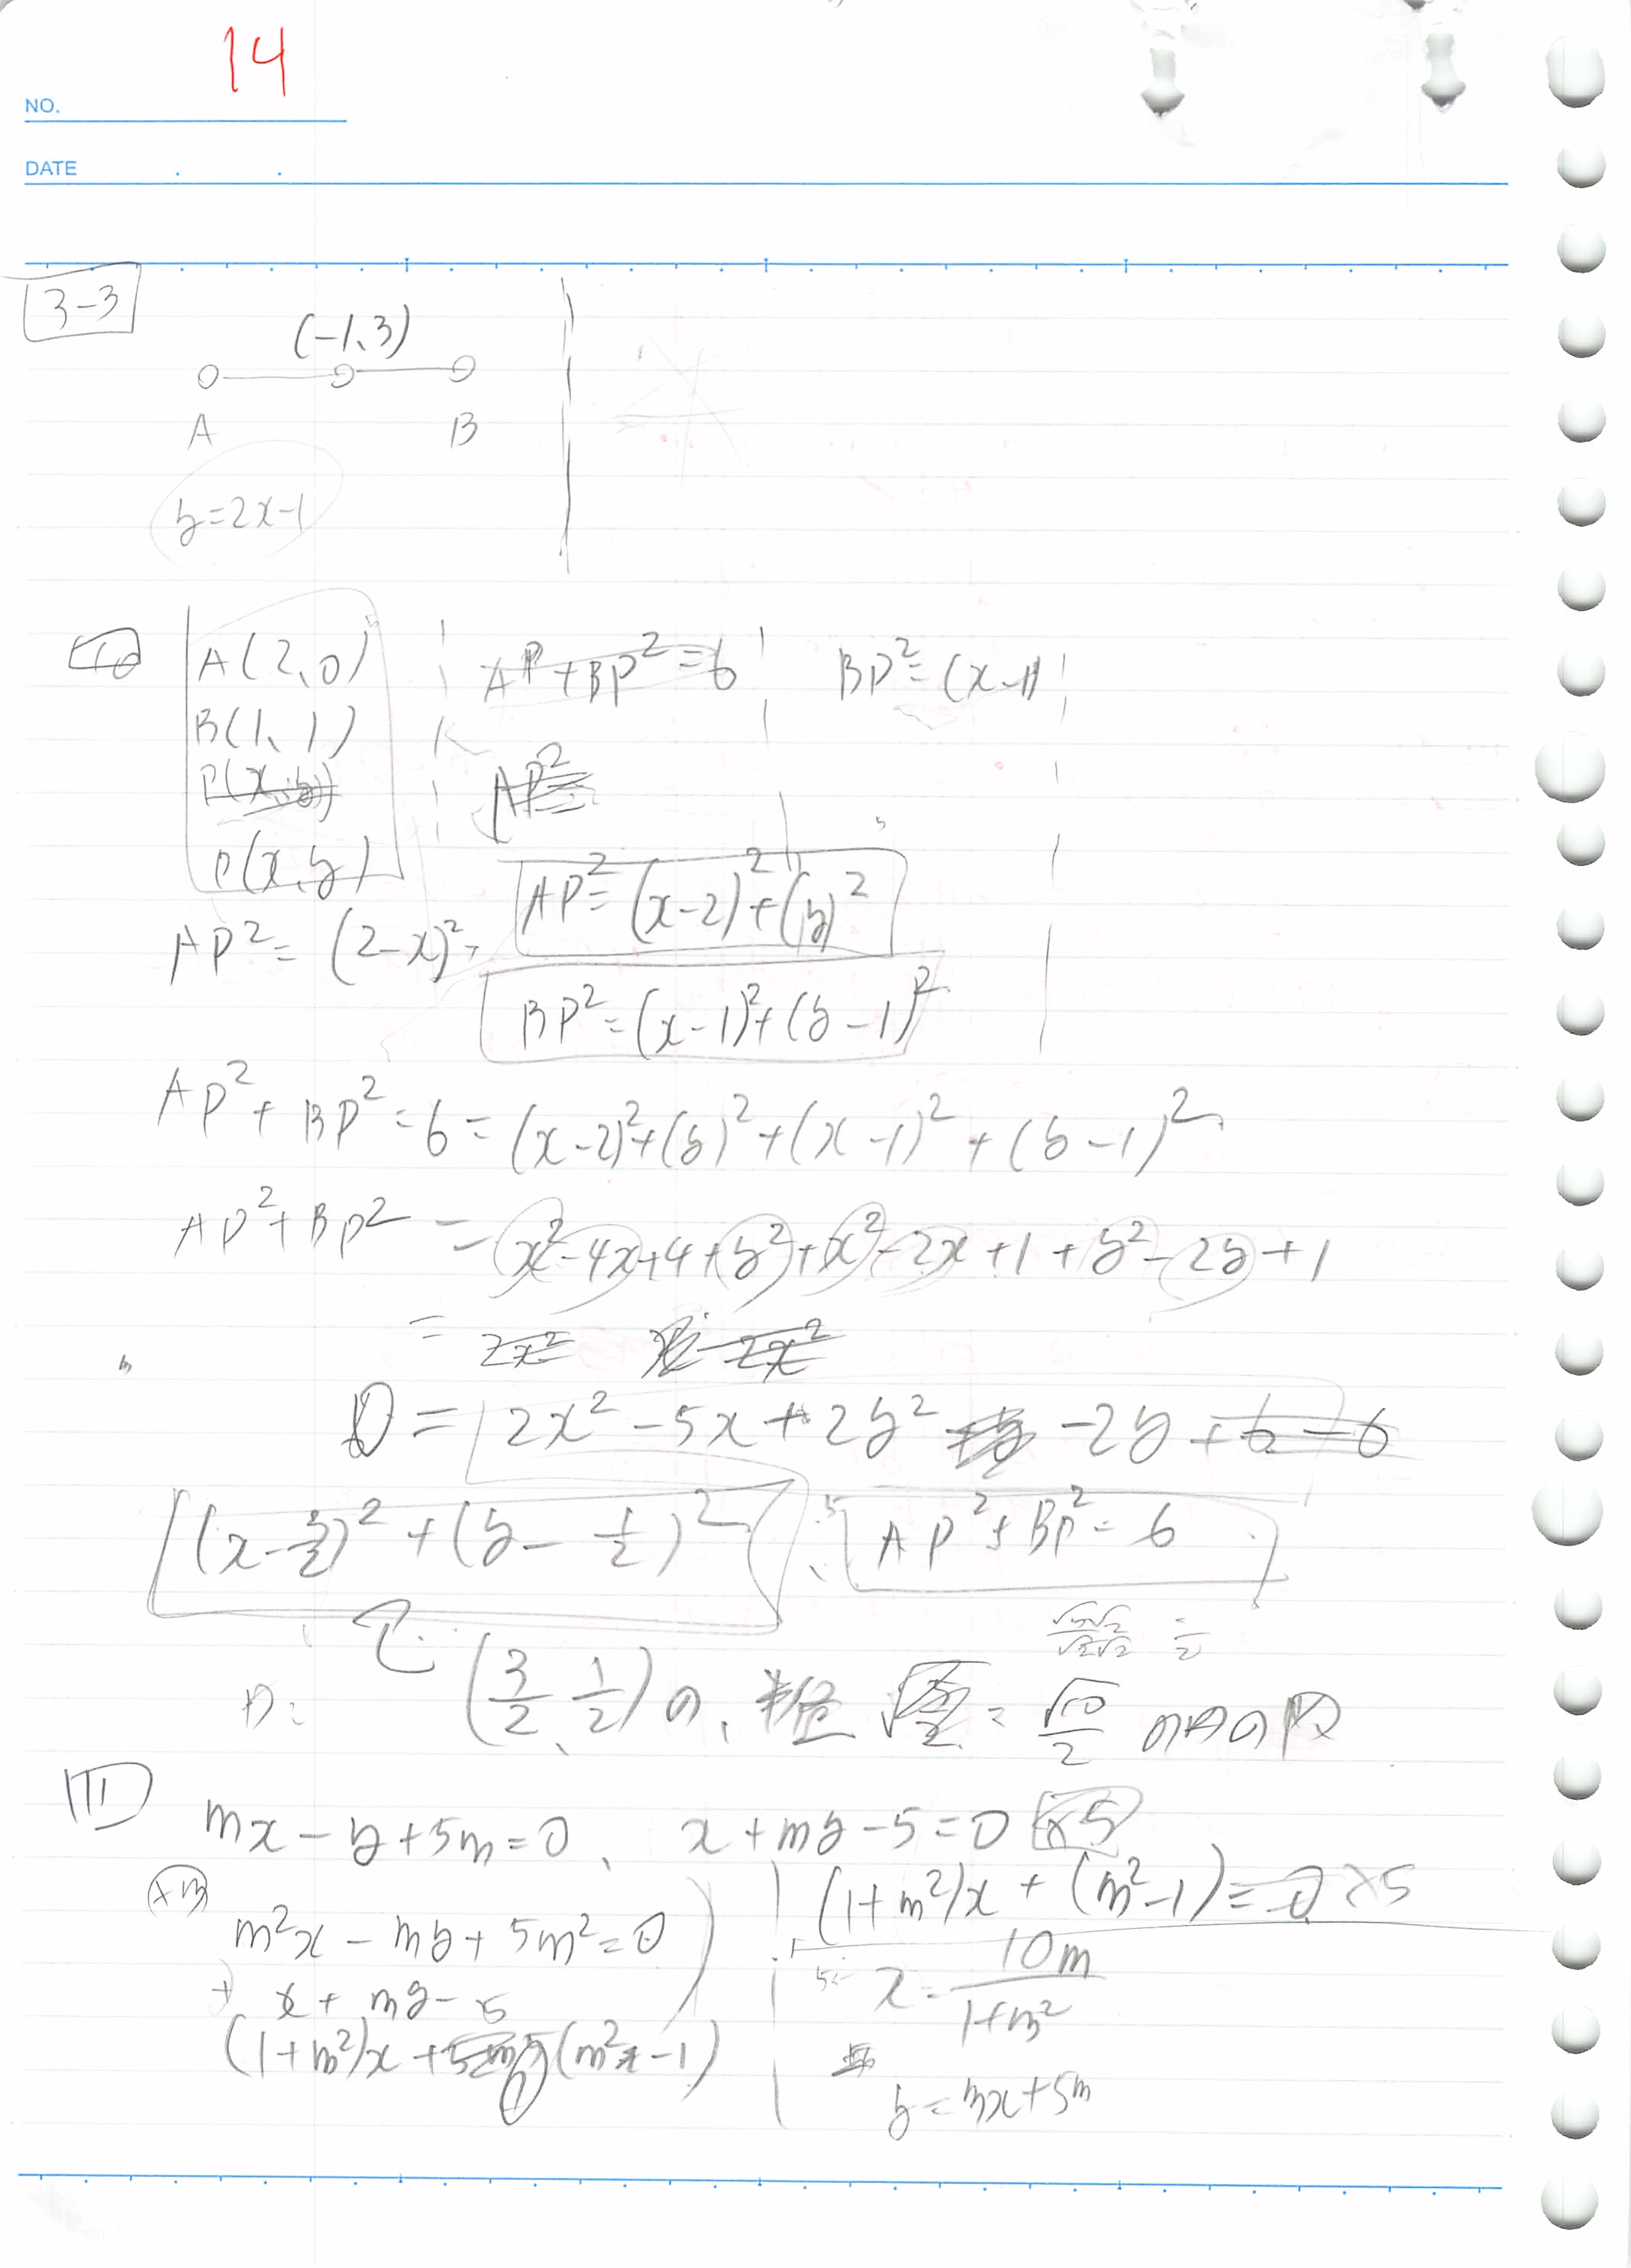 14
NO.
DATE
3-3
(-1, 3)
A B
y=2x-1
A(2, 0)
B(1, 1)
P(x, y)
P(x, y)
AP²+BP²=6
BP²=(x-1)
AP²=
AP²=(x-2)²+(y)²
AP²=(2-x)²+
BP²=(x-1)²+(y-1)²
AP²+BP²=6=(x-2)²+(y)²+(x-1)²+(y-1)²
AP²+BP² =x²-4x+4+y²+x²-2x+1+y²-2y+1
= 2x² 2x²
0=2x²-5x+2y² -2y+6-6
(x-3/2)²+(y-1/2)² AP²+BP²=6
(3/2, 1/2)の、半径 √10/2 の円
mx-y+5m=0、 x+my-5=0 ×5
×m
m²x-my+5m²=0
+ x+my-5
(1+m²)x+5(m²-1)
(1+m²)x+(m²-1)=0×5
x=10m/1+m²
y=mx+5m